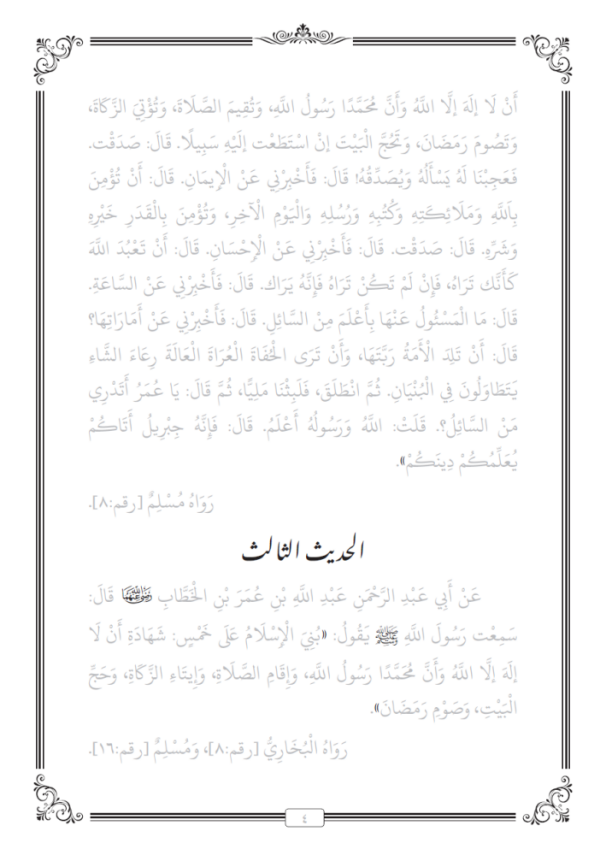 أَنْ لَا إلَهَ إلَّا اللَّهُ وَأَنَّ مُحَمَّدًا رَسُولُ اللَّهِ، وَتُقِيمَ الصَّلَاةَ، وَتُؤْتِيَ الزَّكَاةَ،
وَتَصُومَ رَمَضَانَ، وَتَحُجَّ الْبَيْتَ إنْ اسْتَطَعْت إلَيْهِ سَبِيلًا. قَالَ: صَدَقْت.
فَعَجِبْنَا لَهُ يَسْأَلُهُ وَيُصَدِّقُهُ! قَالَ: فَأَخْبِرْنِي عَنْ الْإِيمَانِ. قَالَ: أَنْ تُؤْمِنَ
بِاَللَّهِ وَمَلَائِكَتِهِ وَكُتُبِهِ وَرُسُلِهِ وَالْيَوْمِ الْآخِرِ، وَتُؤْمِنَ بِالْقَدَرِ خَيْرِهِ
وَشَرِّهِ. قَالَ: صَدَقْت. قَالَ: فَأَخْبِرْنِي عَنْ الْإِحْسَانِ. قَالَ: أَنْ تَعْبُدَ اللَّهَ
كَأَنَّك تَرَاهُ، فَإِنْ لَمْ تَكُنْ تَرَاهُ فَإِنَّهُ يَرَاك. قَالَ: فَأَخْبِرْنِي عَنْ السَّاعَةِ.
قَالَ: مَا الْمَسْئُولُ عَنْهَا بِأَعْلَمَ مِنْ السَّائِلِ. قَالَ: فَأَخْبِرْنِي عَنْ أَمَارَاتِهَا؟
قَالَ: أَنْ تَلِدَ الْأَمَةُ رَبَّتَهَا، وَأَنْ تَرَى الْحُفَاةَ الْعُرَاةَ الْعَالَةَ رِعَاءَ الشَّاءِ
يَتَطَاوَلُونَ فِي الْبُنْيَانِ. ثُمَّ انْطَلَقَ، فَلَبِثْنَا مَلِيًّا، ثُمَّ قَالَ: يَا عُمَرُ أَتَدْرِي
مَنْ السَّائِلُ؟. قَلَتْ: اللَّهُ وَرَسُولُهُ أَعْلَمُ. قَالَ: فَإِنَّهُ جِبْرِيلُ أَتَاكُمْ
يُعَلِّمُكُمْ دِينَكُمْ».
رَوَاهُ مُسْلِمٌ [رقم:٨].
الحديث الثالث
عَنْ أَبِي عَبْدِ الرَّحْمَنِ عَبْدِ اللَّهِ بْنِ عُمَرَ بْنِ الْخَطَّابِ رَضِيَ اللَّهُ عَنْهُمَا قَالَ:
سَمِعْت رَسُولَ اللَّهِ ﷺ يَقُولُ: «بُنِيَ الْإِسْلَامُ عَلَى خَمْسٍ: شَهَادَةِ أَنْ لَا
إلَهَ إلَّا اللَّهُ وَأَنَّ مُحَمَّدًا رَسُولُ اللَّهِ، وَإِقَامِ الصَّلَاةِ، وَإِيتَاءِ الزَّكَاةِ، وَحَجِّ
الْبَيْتِ، وَصَوْمِ رَمَضَانَ».
رَوَاهُ الْبُخَارِيُّ [رقم:٨]، وَمُسْلِمٌ [رقم:١٦].
٤